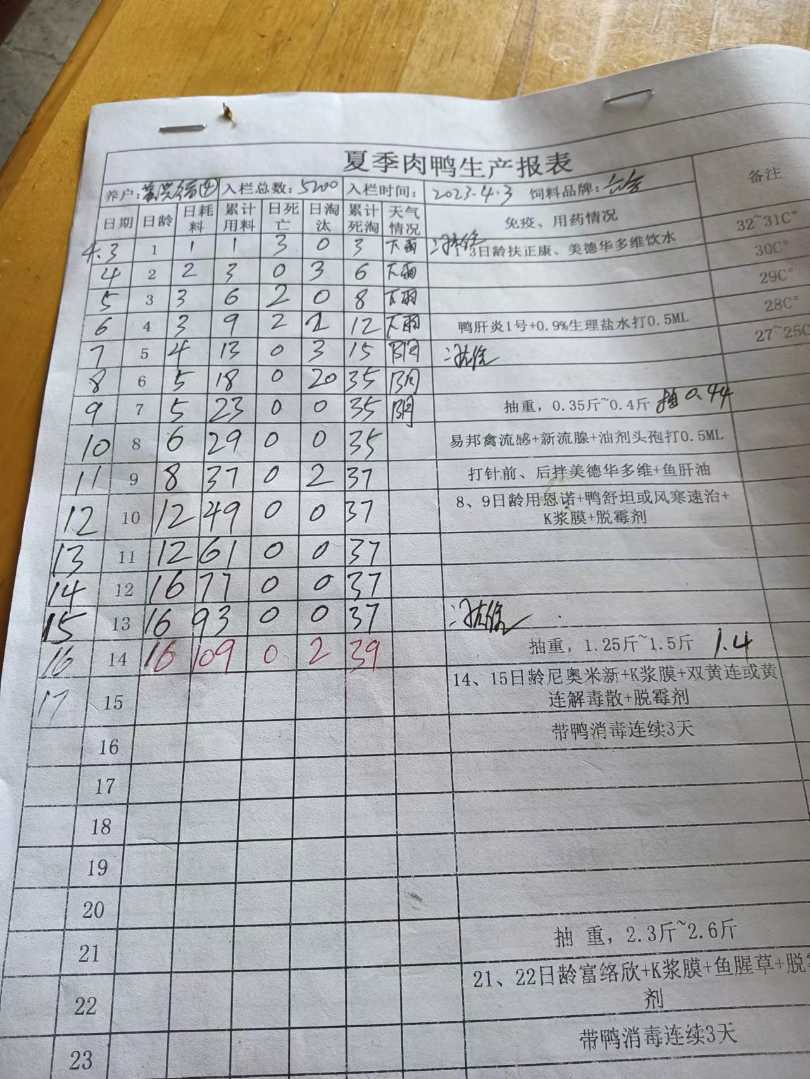 夏季肉鸭生产报表
养户: 入栏总数:5200 入栏时间: 2023.4.3 饲料品牌: 备注
日期 日龄 日耗料 累计用料 日死亡 日淘汰 累计死淘 天气情况 免疫、用药情况
4.3 1 1 1 3 0 3 下雨 3日龄扶正康、美德华多维饮水 32~31C°
4 2 2 3 0 3 6 下雨 30C°
5 3 3 6 2 0 8 下雨 29C°
6 4 3 9 2 2 12 下雨 鸭肝炎1号+0.9%生理盐水打0.5ML 28C°
7 5 4 13 0 3 15 阴 27~25C
8 6 5 18 0 20 35 阴
9 7 5 23 0 0 35 阴 抽重,0.35斤~0.4斤 抽0.44
10 8 6 29 0 0 35 易邦禽流感+新流腺+油剂头孢打0.5ML
11 9 8 37 0 2 37 打针前、后拌美德华多维+鱼肝油
12 10 12 49 0 0 37 8、9日龄用恩诺+鸭舒坦或风寒速治+
K浆膜+脱霉剂
13 11 12 61 0 0 37
14 12 16 77 0 0 37
15 13 16 93 0 0 37
16 14 16 109 0 2 39 抽重,1.25斤~1.5斤 1.4
17 15 14、15日龄尼奥米新+K浆膜+双黄连或黄
连解毒散+脱霉剂
16 带鸭消毒连续3天
17
18
19
20
21 抽 重,2.3斤~2.6斤
22 21、22日龄富络欣+K浆膜+鱼腥草+脱
剂
23 带鸭消毒连续3天